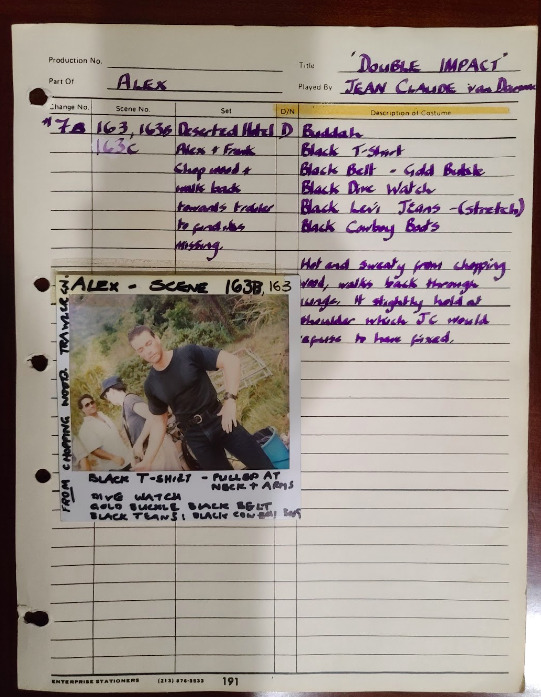 Production No.
Title "DOUBLE IMPACT"
Part Of ALEX
Played By JEAN CLAUDE van Damme
Change No. Scene No. Set D/N Description of Costume
#7B 163, 163B Deserted Hotel D Buddah
163C Alex & Frank Black T-Shirt
Chop wood & Black Belt - Gold Buckle
walk back Black Dive Watch
towards trawler Black Levi Jeans - (stretch)
to find Black Cowboy Boots
missing.
Hot and sweaty from chopping
wood, walks back through
jungle. slightly hold at
shoulder which JC would
refuse to have fixed.
ALEX - SCENE 163B, 163
FROM CHOPPING WOOD. TRAWLER
BLACK T-SHIRT - PULLED AT
NECK & ARMS
DIVE WATCH
GOLD BUCKLE BLACK BELT
BLACK JEANS: BLACK
ENTERPRISE STATIONERS (213) 876-3533 191